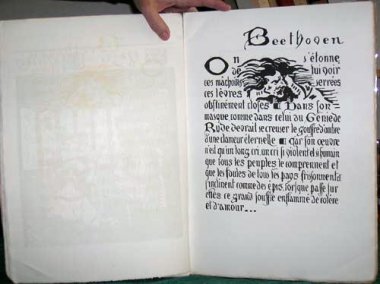 Beethoven
On s'étonne
de lui voir
ces mâchoires serrées
ces lèvres
obstinément closes Dans son
masque comme dans celui du Génie de
Rude devrait se creuser le gouffre d'ombre
d'une clameur éternelle Car son œuvre
n'est qu'un long cri, un cri si violent et si humain
que tous les peuples le comprennent et
que les foules de tous les pays frissonnent &
s'inclinent comme des épis, lorsque passe sur
elles ce grand souffle enflammé de colère
et d'amour...